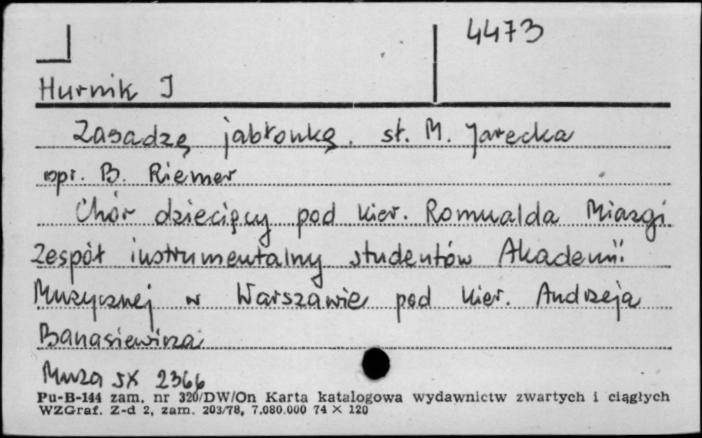 4473
Hurnik I
Zasadzę jabłonkę. sł. M. Jarecka
opr. B. Riemer
Chór dziecięcy pod kier. Romualda Miazgi
Zespół instrumentalny studentów Akademii
Muzycznej w Warszawie pod kier. Andrzeja
Banasiewicza
Muza SX 2366
Pu-B-144 zam. nr 320/DW/On Karta katalogowa wydawnictw zwartych i ciągłych
WZGraf. Z-d 2, zam. 203/78, 7.080.000 74 × 120